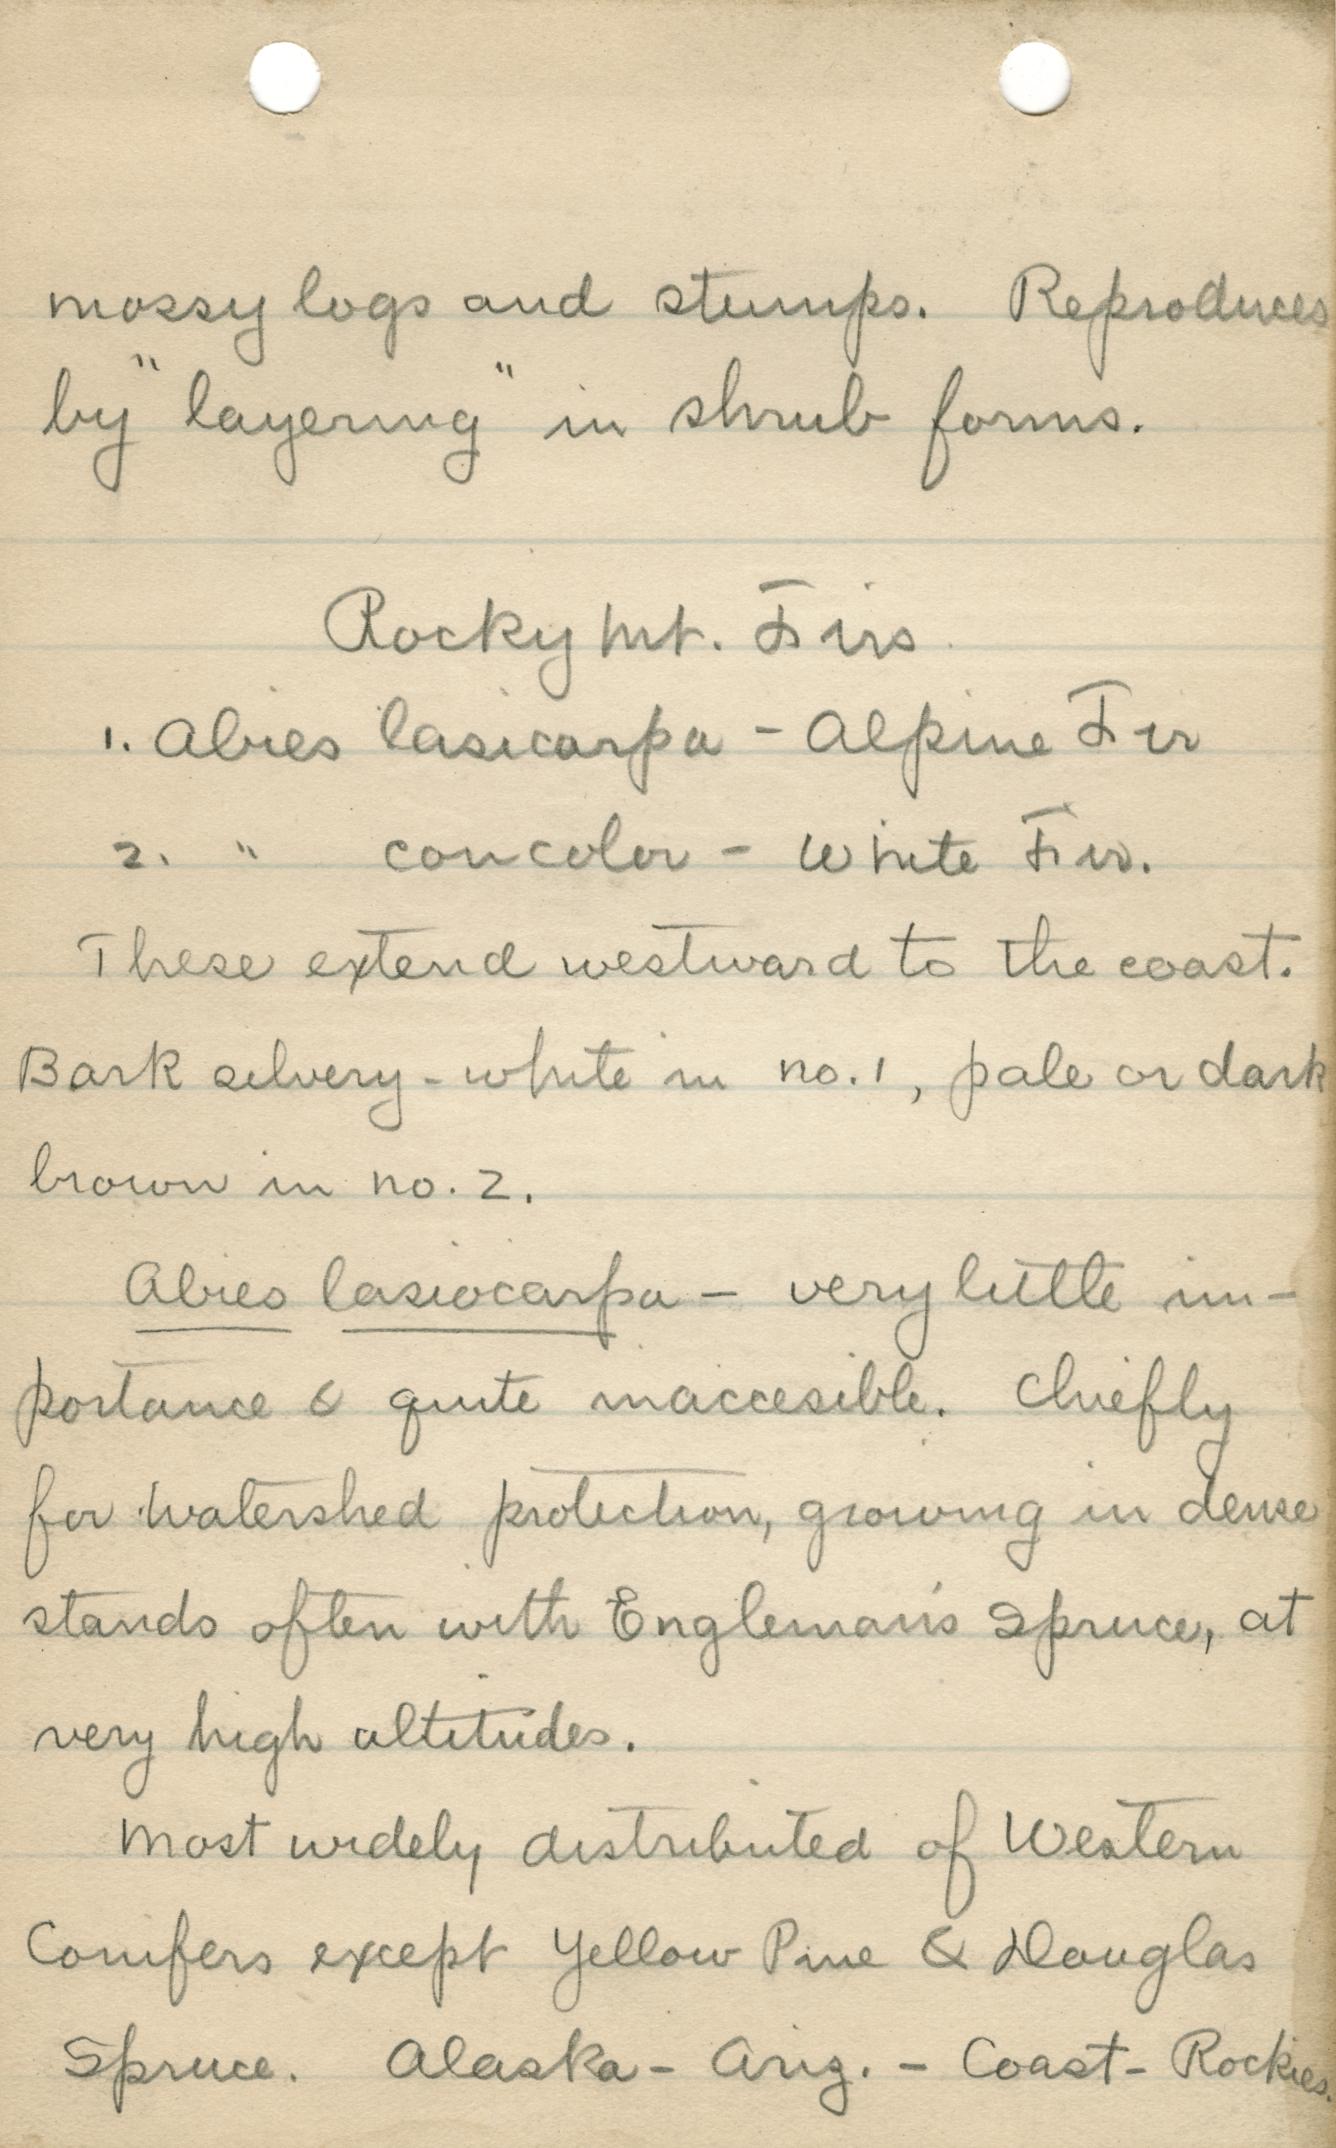 mossy logs and stumps. Reproduces
by "layering" in shrub forms.
Rocky Mt. Firs
1. Abies lasicarpa - Alpine Fir
2. " concolor - White Fir.
These extend westward to the coast.
Bark silvery-white in no. 1, pale or dark
brown in no. 2.
Abies lasiocarpa - very little im-
portance & quite inaccesible. Chiefly
for watershed protection, growing in dense
stands often with Engleman's Spruce, at
very high altitudes.
Most widely distributed of Western
Conifers except Yellow Pine & Douglas
Spruce. Alaska - Ariz. - Coast - Rockies.